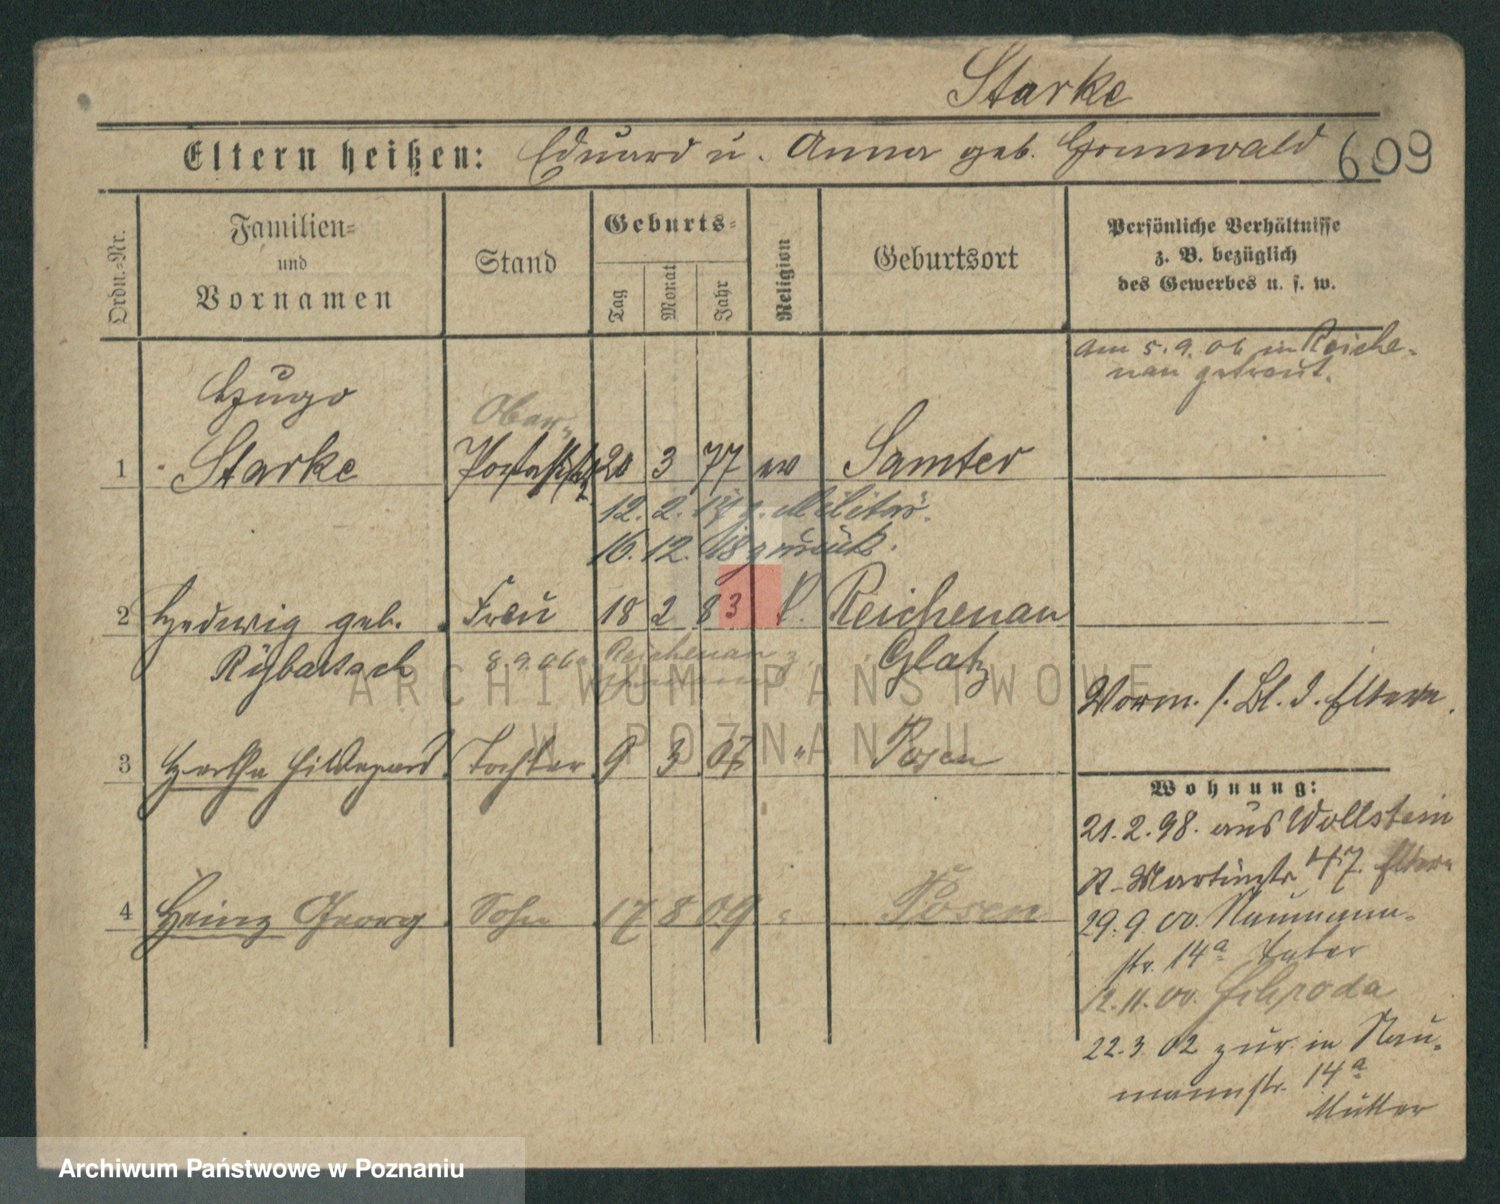 Starke
Eltern heißen: Eduard u. Anna geb. Grunwald 609
Ordn.-Nr.
Familien-
und
Vornamen
Stand
Geburts-
Tag
Monat
Jahr
Religion
Geburtsort
Persönliche Verhältnisse
z. B. bezüglich
des Gewerbes u. s. w.
am 5.9.06 in Reiche-
nau getraut.
Hugo
Ober-
1 Starke 20 3 77 ev Samter
12. 2. z. Militär.
16. 12. 18 zurück.
2 Hedwig geb. Frau 18 2 83 k. Reichenau
8.9.06 Reichenau z. Glatz
Vorm. s. Bl. d. Eltern.
3 Hertha Hildegard Tochter 9 3 07 " Posen
Wohnung:
21.2.98. aus Wollstein
St. Martinstr. 47. Eltern
4 Heinz Georg Sohn 17 8 09 " Posen
29.9.00. Naumann-
str. 14a Vater
12.11.00. Schroda
22.3.02 zur. in Nau-
mannstr. 14a
Mutter
ARCHIWUM PAŃSTWOWE
W POZNANIU
Archiwum Państwowe w Poznaniu